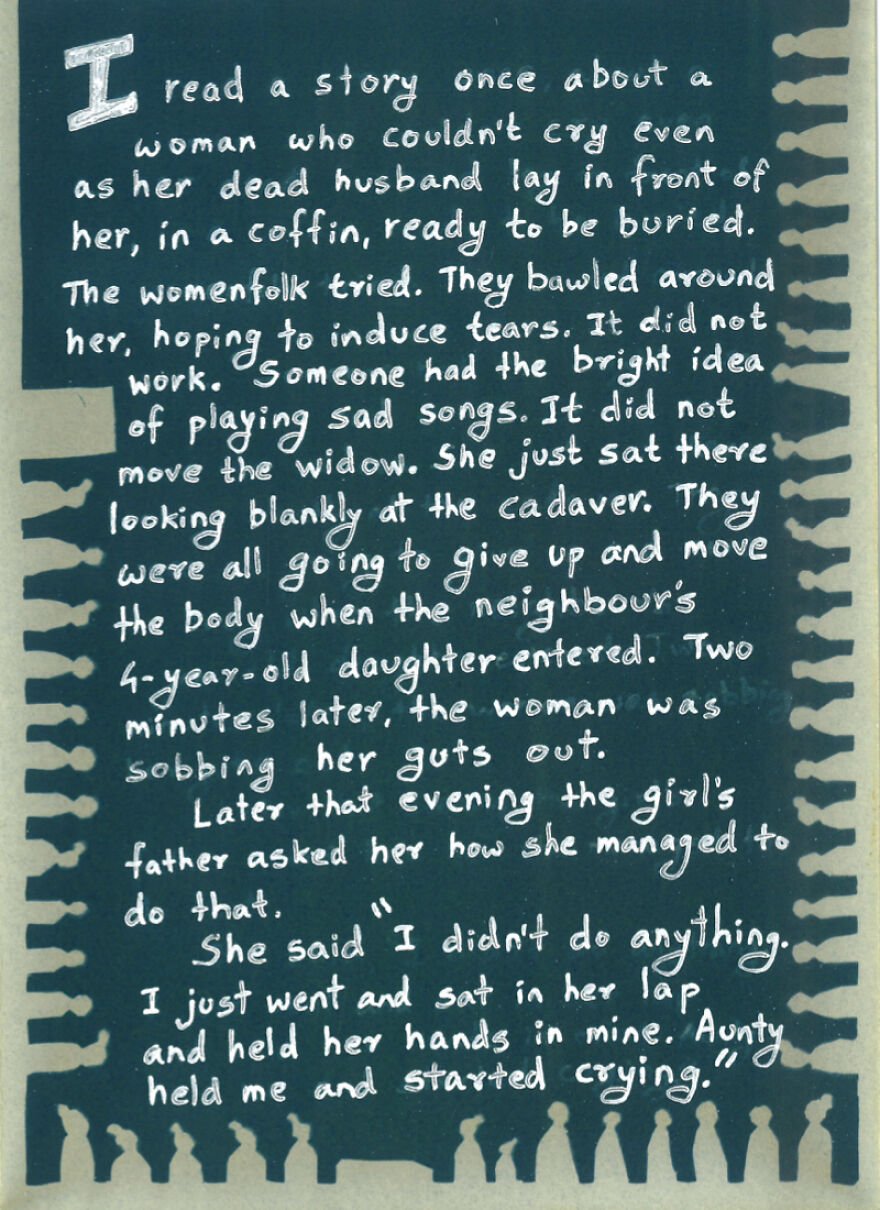 I read a story once about a
woman who couldn't cry even
as her dead husband lay in front of
her, in a coffin, ready to be buried.
The womenfolk tried. They bawled around
her, hoping to induce tears. It did not
work. Someone had the bright idea
of playing sad songs. It did not
move the widow. She just sat there
looking blankly at the cadaver. They
were all going to give up and move
the body when the neighbour's
4-year-old daughter entered. Two
minutes later, the woman was
sobbing her guts out.
Later that evening the girl's
father asked her how she managed to
do that.
She said "I didn't do anything.
I just went and sat in her lap
and held her hands in mine. Aunty
held me and started crying."